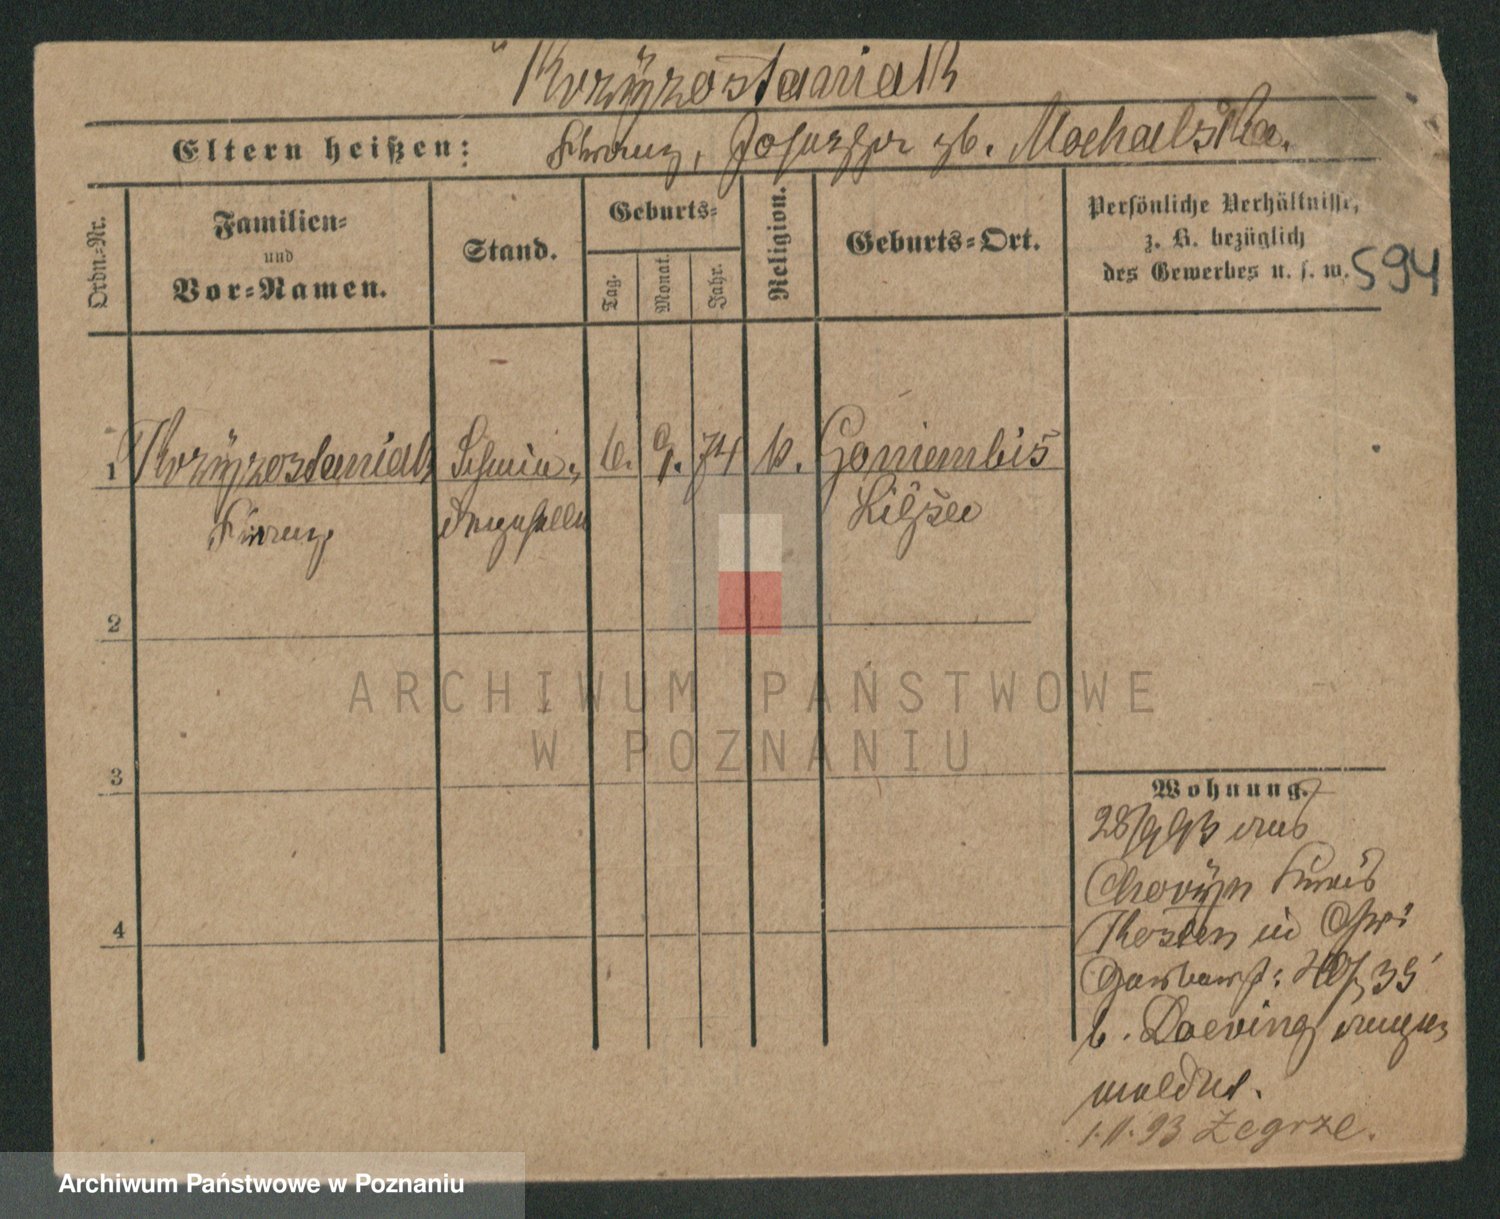 Korzyzostaniak
Eltern heißen: Franz, Josepha gb. Machalska.
Ordn.-Nr.
Familien-
und
Vor-Namen.
Stand.
Geburts-
Tag.
Monat.
Jahr.
Religion.
Geburts-Ort.
Persönliche Verhältnisse,
z. B. bezüglich
des Gewerbes u. s. w.
594
1 Korzyzostaniak Schmie- 6. 9. 74 k. Goniembis
Franz degeselle
2
3
4
Wohnung.
28/9 93 aus
Choryn Kreis
Kosten in
35
b. Doering ange-
meldet.
1.11.93 Zegrze.
ARCHIWUM PAŃSTWOWE
W POZNANIU
Archiwum Państwowe w Poznaniu